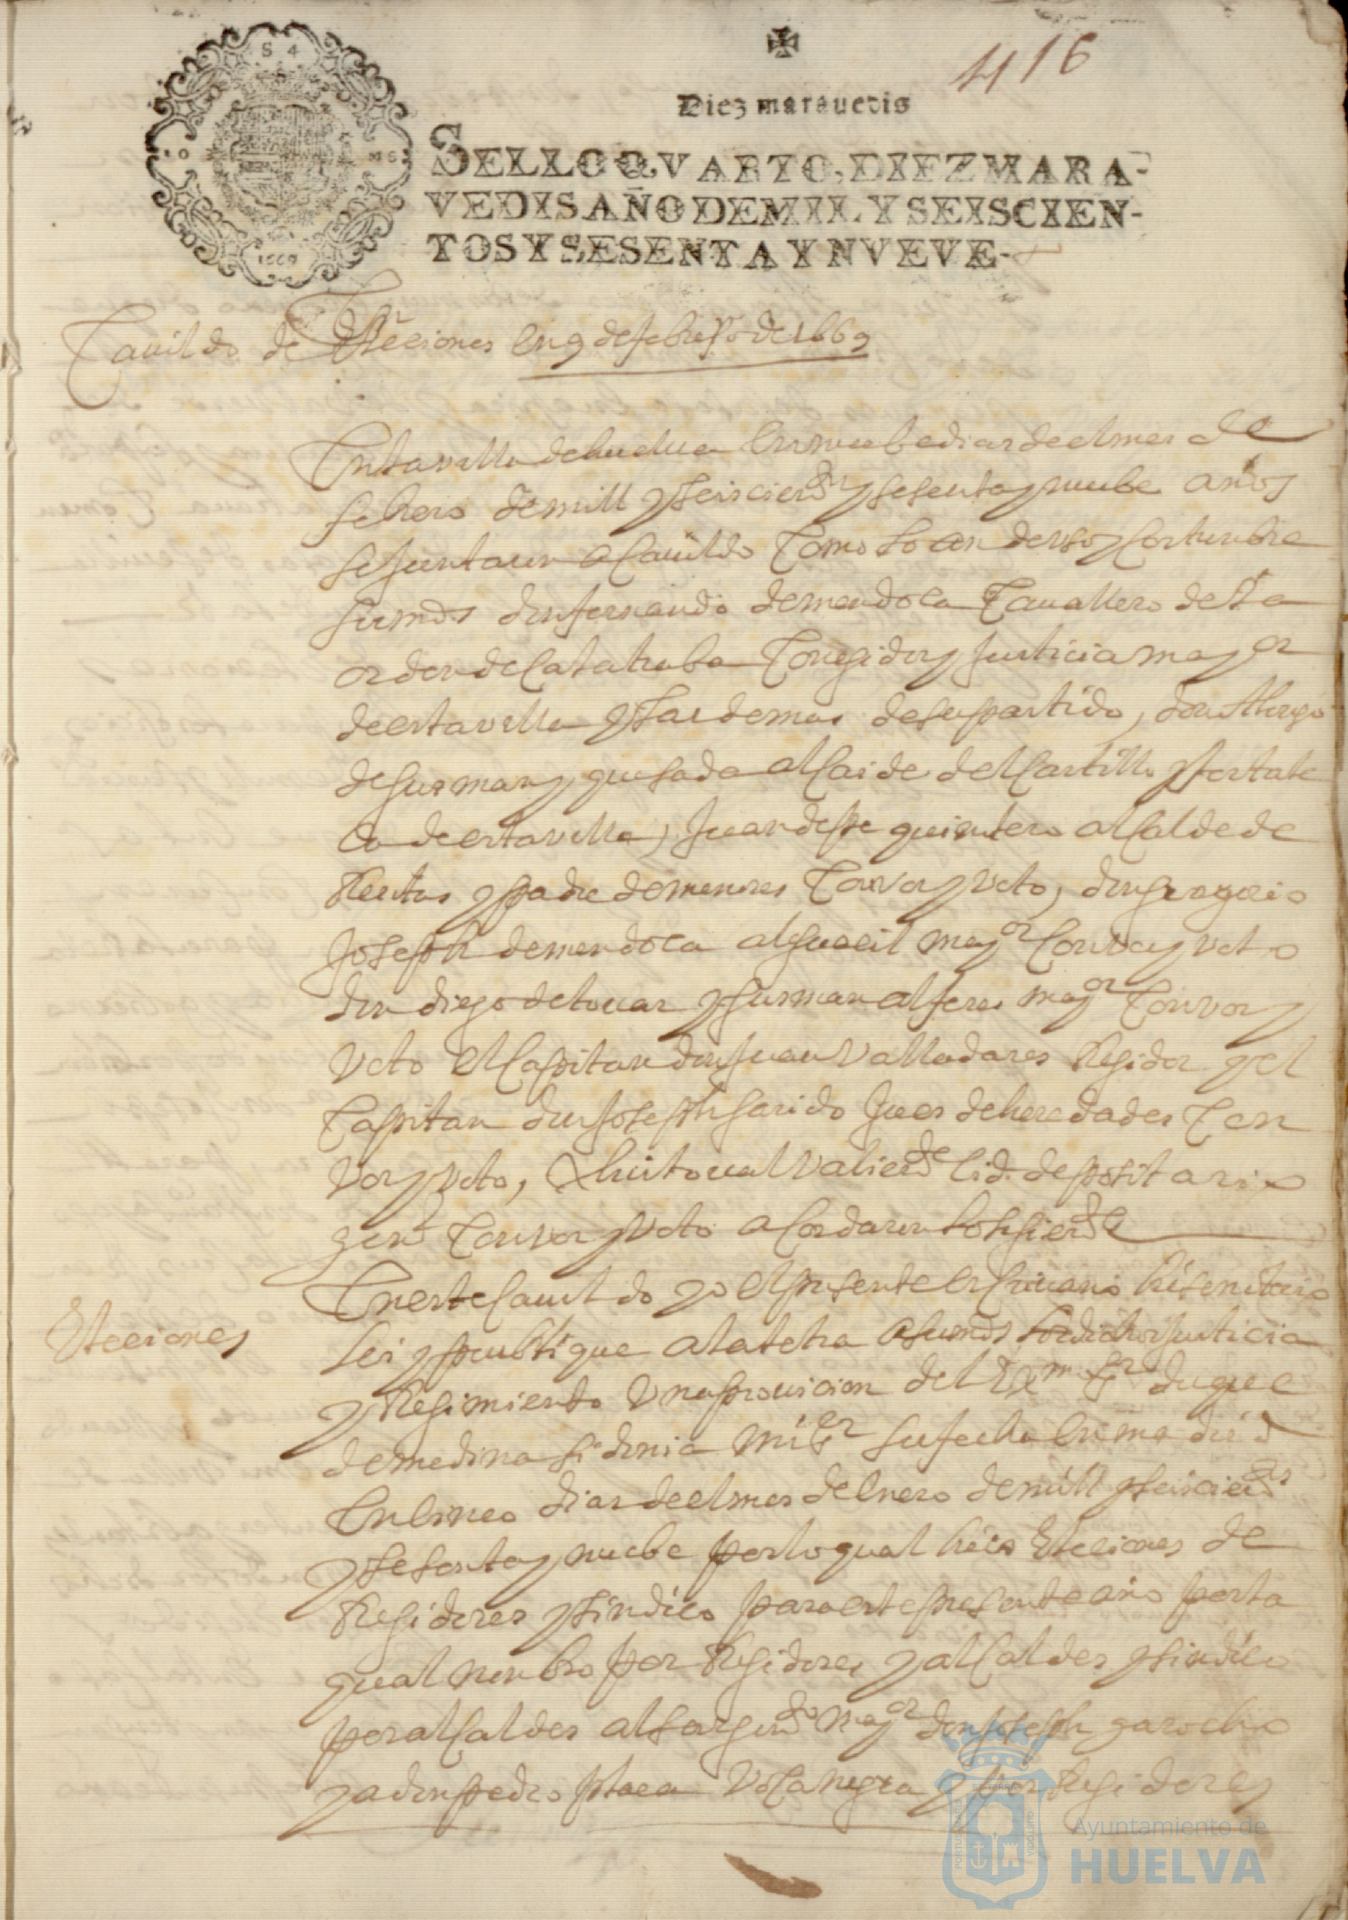 416
Diez maravedis
SELLO QVARTO, DIEZ MARA-
VEDIS AÑO DE MIL Y SEISCIEN-
TOS Y SESENTA Y NVEVE-
1669
Cauildo de Elecciones en 9 de febrero de 1669
En la villa de huelua en nuebe dias de el mes de
febrero de mill y seiscien.os y sesenta y nuebe años
se juntaron a Cauildo Como lo an de uso y Costunbre
sus mds don fernando de mendoca Cauallero de la
orden de Calatraba Corregidor y Justicia mayor
de esta villa y las demas de su partido, don
de Gusman y quesada alcaide del Castillo y fortale
ca de esta villa, Juan quintero alcalde de
Rentas y padre de menores Con vos y voto, don gregorio
Joseph de mendoca alguacil mayor Con vos y voto
don diego de touar y Gusman alferes mayor Con vos y
voto el Capitan don Juan Valladares Regidor y el
Capitan don Joseph garrido Jues de heredades Con
vos y voto, Christoual Valiente lid. depositario
gen.l Con vos y voto acordaron lo siguiente
Elecciones
En este Cauildo yo el presente escriuano hise notorio
lei y publique a la letra a sus mds los dichos Justicia
y Regimiento Una prouicion del Exmo Sr duque
de medina sidonia mi Sr su fecha en md
En cinco dias de el mes de enero de mill y seiscien.os
y sesenta y nuebe por lo qual hiço Elecciones de
Regidores y sindico para este presente año por la
qual nonbro por Regidores y alcaldes y sindico
por alcaldes al sargento mayor don Joseph garocho
y a don pedro plaça Vocanegra y por Regidores
Ayuntamiento de
HUELVA